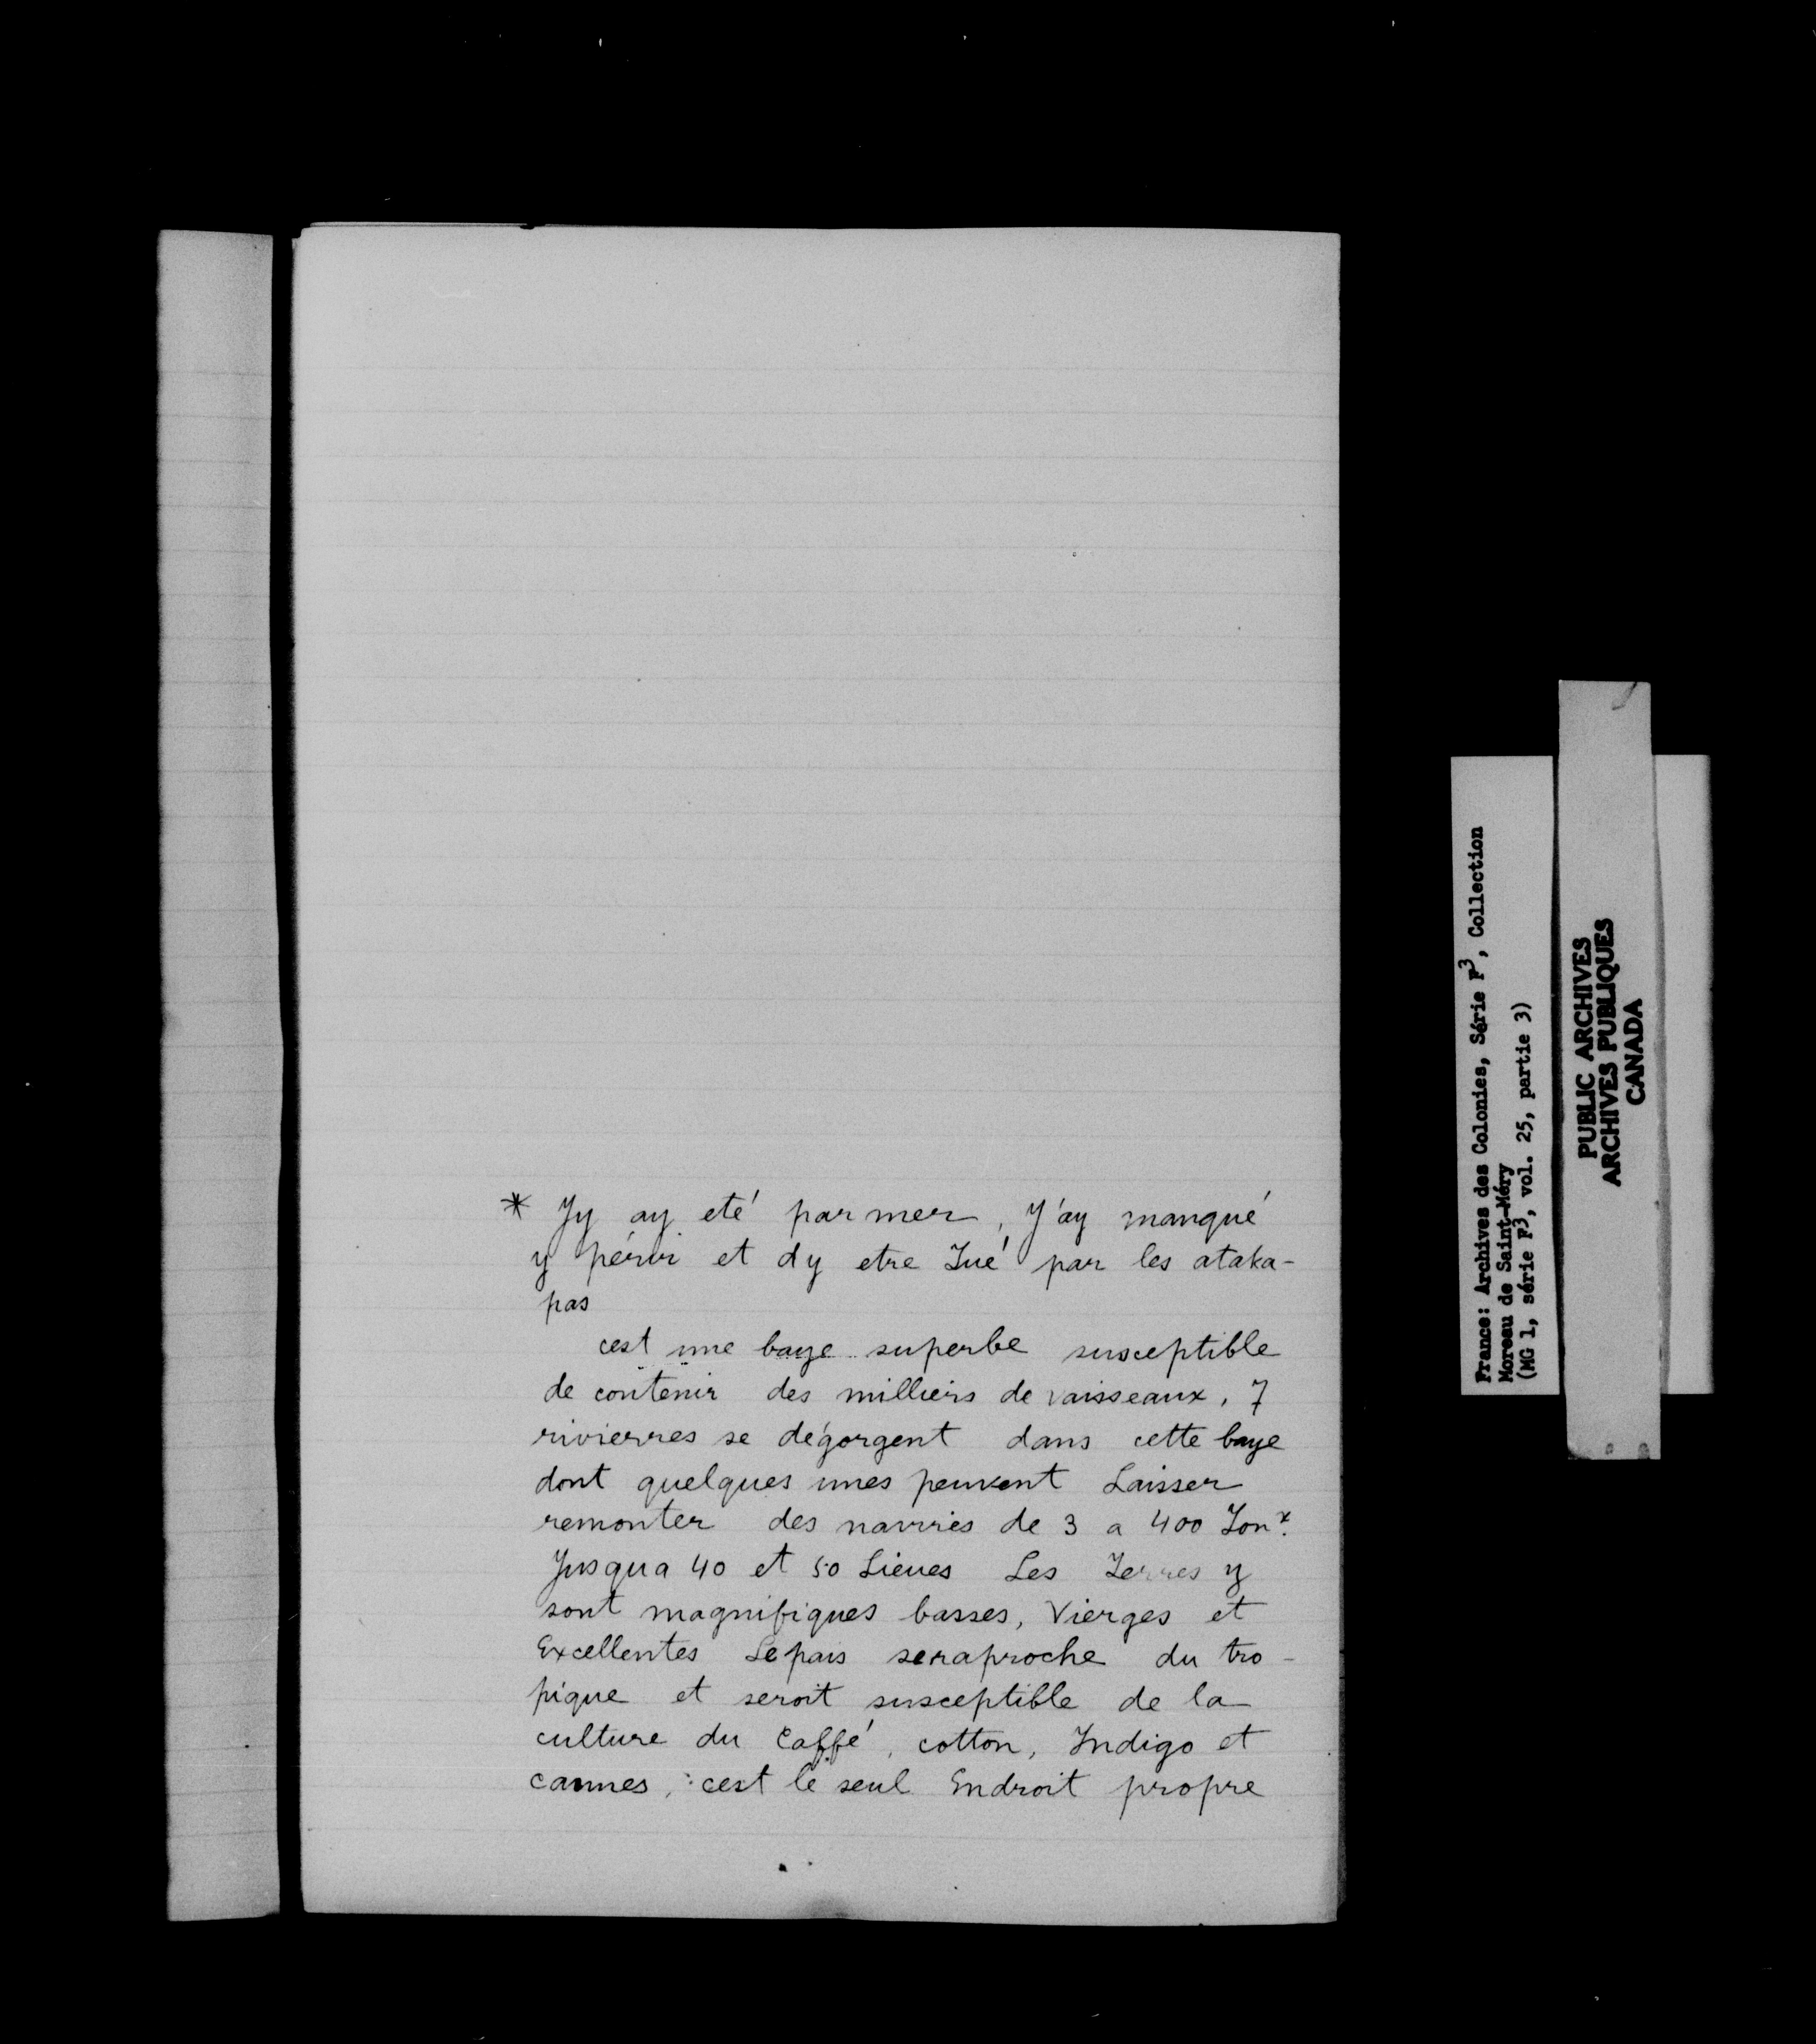 * Jy ay eté par mer, J'ay manqué
y périr et dy etre Tué par les ataka-
pas
cest une baye superbe susceptible
de contenir des milliers de vaisseaux, 7
rivierres se dégorgent dans cette baye
dont quelques unes peuvent Laisser
remonter des navires de 3 a 400 Tonx.
Jusqua 40 et 50 Lieues Les Terres y
sont magnifiques basses, Vierges et
Excellentes Le pais seraproche du tro-
pique et seroit susceptible de la
culture du Caffé, cotton, Indigo et
cannes, cest le seul Endroit propre
France: Archives des Colonies, Série F3, Collection
Moreau de Saint-Méry
(MG 1, série F3, vol. 25, partie 3)
PUBLIC ARCHIVES
ARCHIVES PUBLIQUES
CANADA